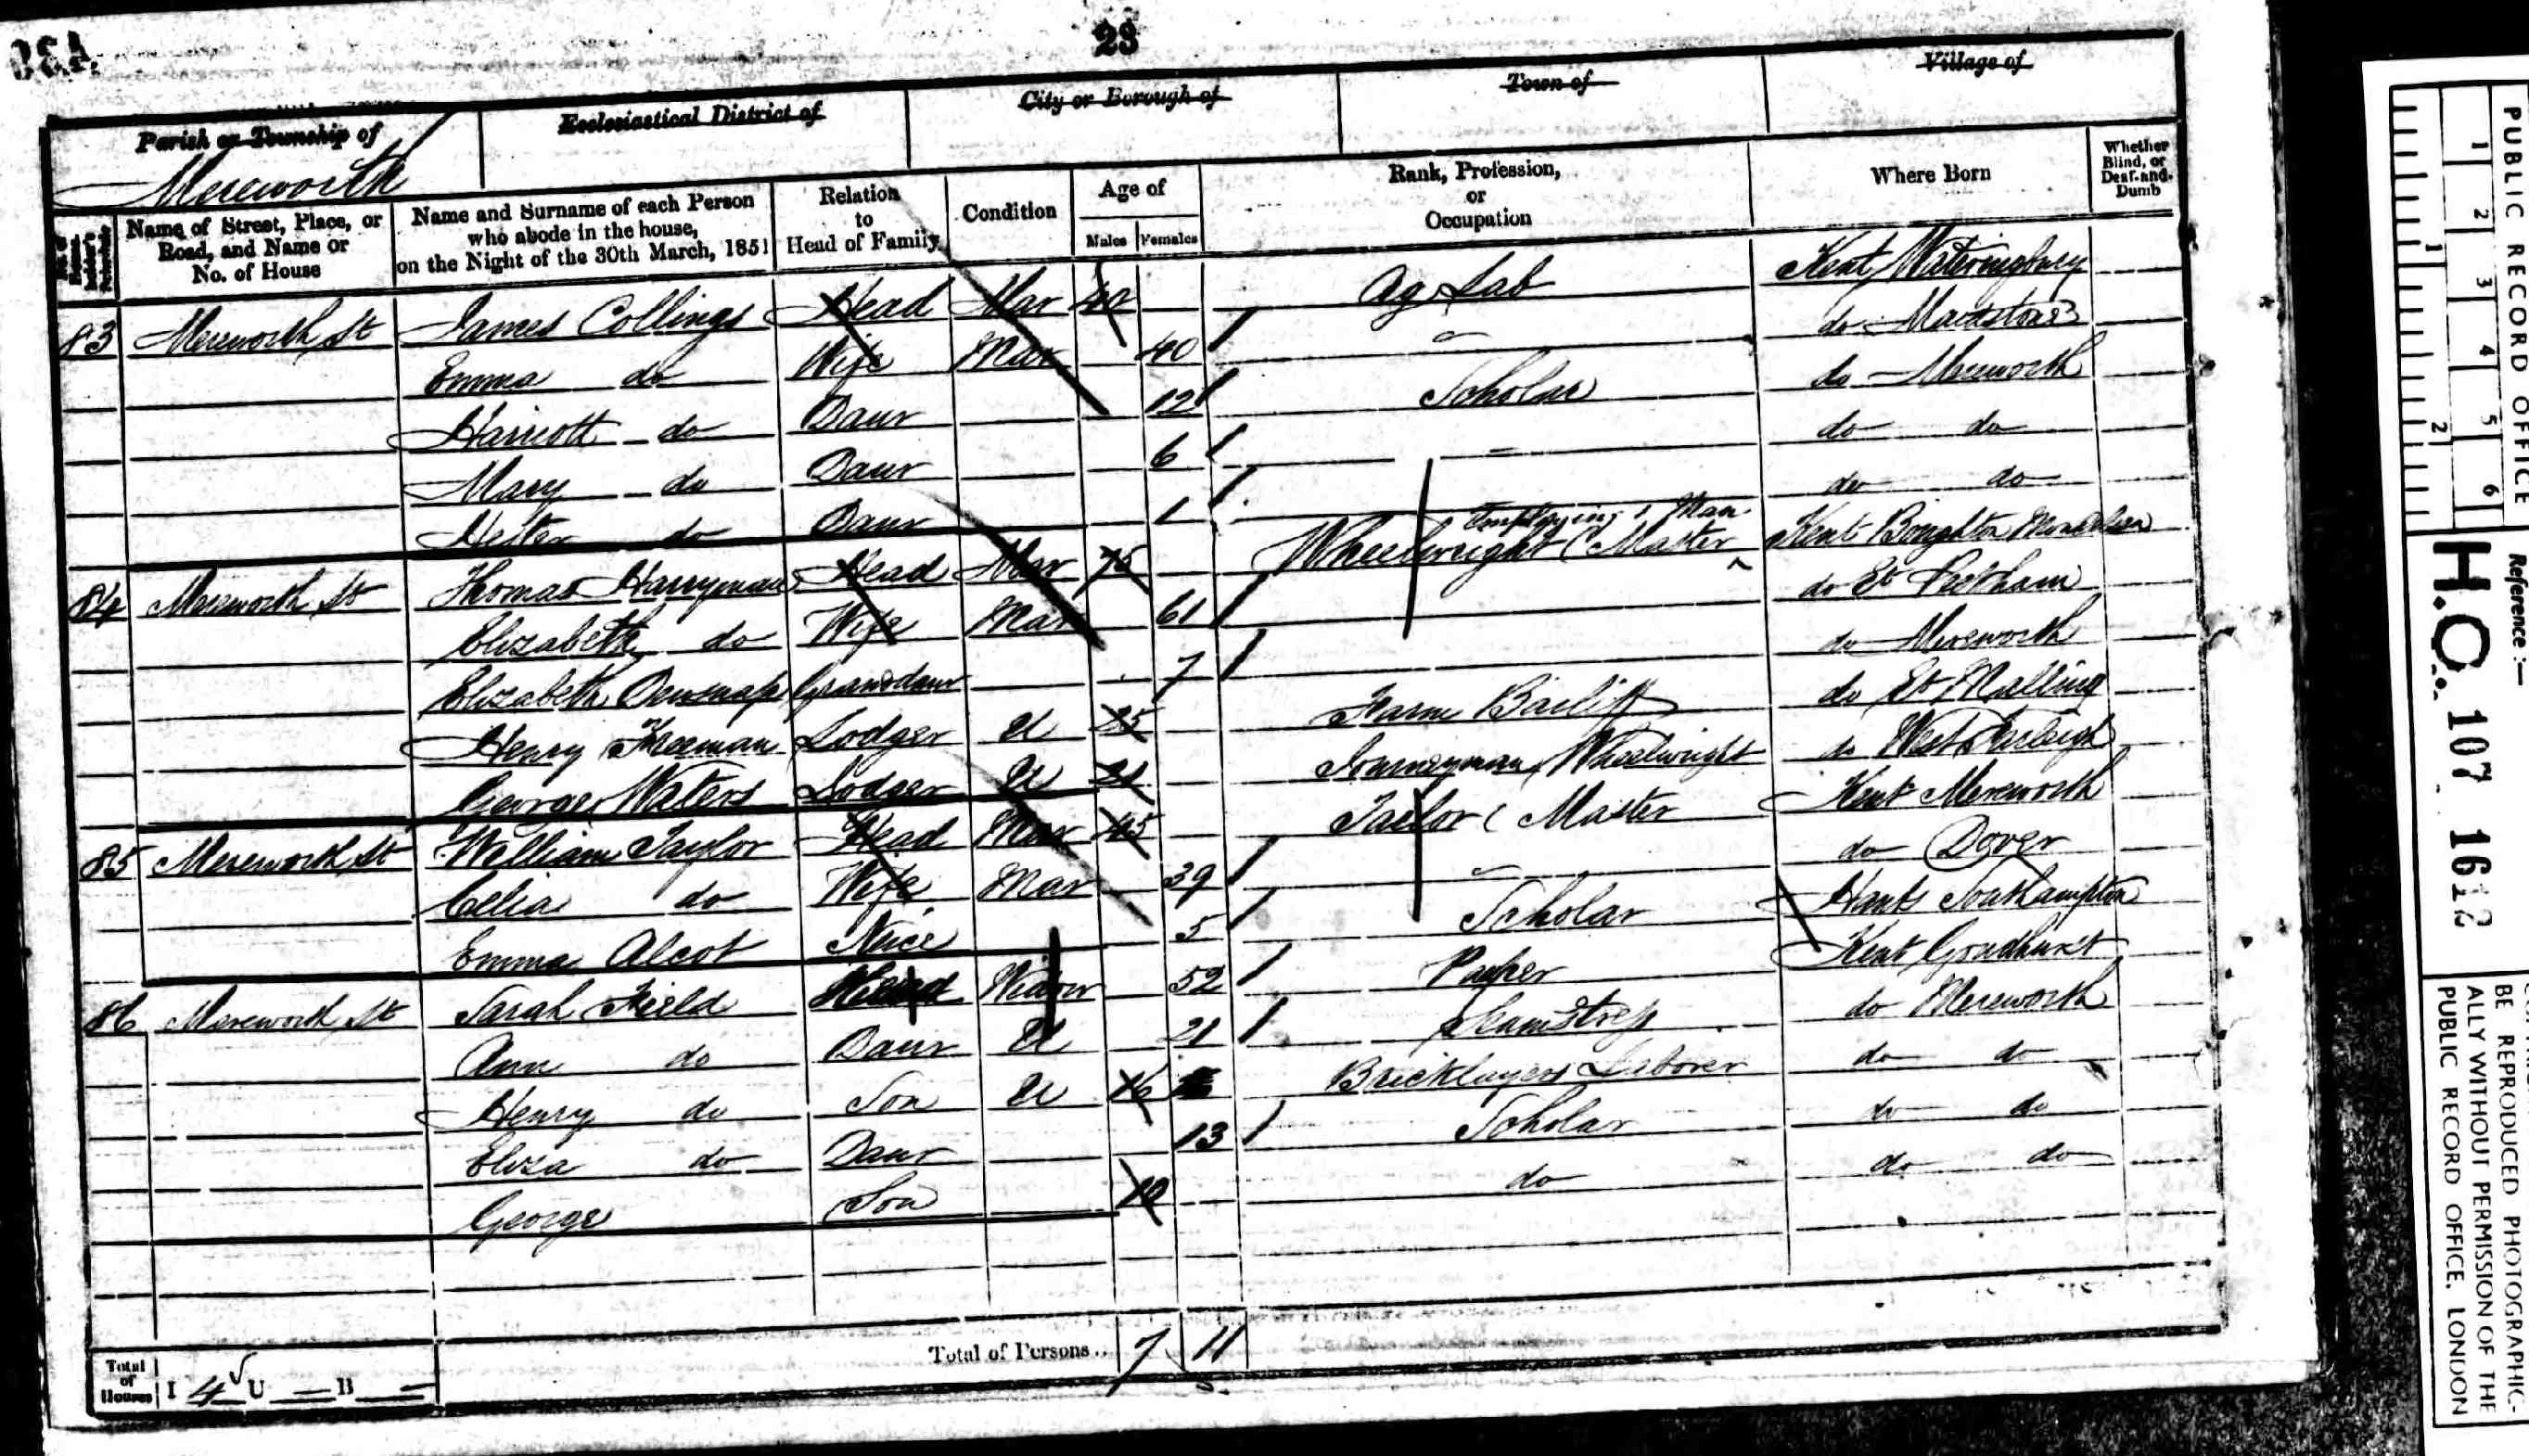 23
Parish or Township of
Mereworth
Ecclesiastical District of
City or Borough of
Town of
Village of
Name of Street, Place, or Road, and Name or No. of House
Name and Surname of each Person who abode in the house, on the Night of the 30th March, 1851
Relation to Head of Family
Condition
Age of
Males Females
Rank, Profession, or Occupation
Where Born
Whether Blind, or Deaf-and-Dumb
83 Mereworth St James Collings Head Mar 42 Ag Lab Kent Wateringbury
Emma do Wife Mar 40 do Maidstone
Harriott do Daur 12 Scholar do Mereworth
Mary do Daur 6 do do
Hester do Daur 1 do do
84 Mereworth St Thomas Harryman Head Mar 75 Wheelwright (Master Employing 1 Man Kent Boughton
Elizabeth do Wife Mar 61 do Et Peckham
Elizabeth Granddaur 7 do Mereworth
Henry Freeman Lodger U 25 Farm Bailiff do Et Malling
George Waters Lodger U 21 Journeyman Wheelwright do West Farleigh
85 Mereworth St William Taylor Head Mar 45 Tailor (Master Kent Mereworth
Celia do Wife Mar 39 do Dover
Emma Alcot Niece 5 Scholar Hants Southampton
86 Mereworth St Sarah Field Head Widow 52 Pauper Kent Goudhurst
Ann do Daur U 21 Seamstress do Mereworth
Henry do Son U 16 Bricklayers Laborer do do
Eliza do Daur 13 Scholar do do
George Son 10 do do do
Total of Houses I 4 U — B —
Total of Persons.. 7 11
PUBLIC RECORD OFFICE
1 2 3 4 5 6
1 2
Reference :—
H.O. 107 1612
BE REPRODUCED PHOTOGRAPHIC-
ALLY WITHOUT PERMISSION OF THE
PUBLIC RECORD OFFICE. LONDON